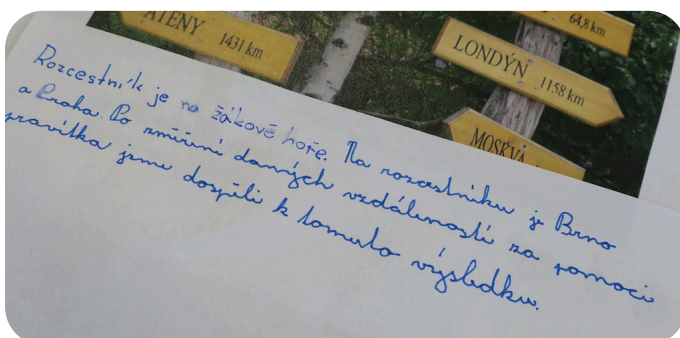 ATÉNY 1431 km
64,8 km
LONDÝN 1158 km
MOSKVA
Rozcestník je na žákově hoře. Na rozcestníku je Brno
a Praha. Po změření daných vzdáleností za pomoci
pravítka jsme dospěli k tomuto výsledku.